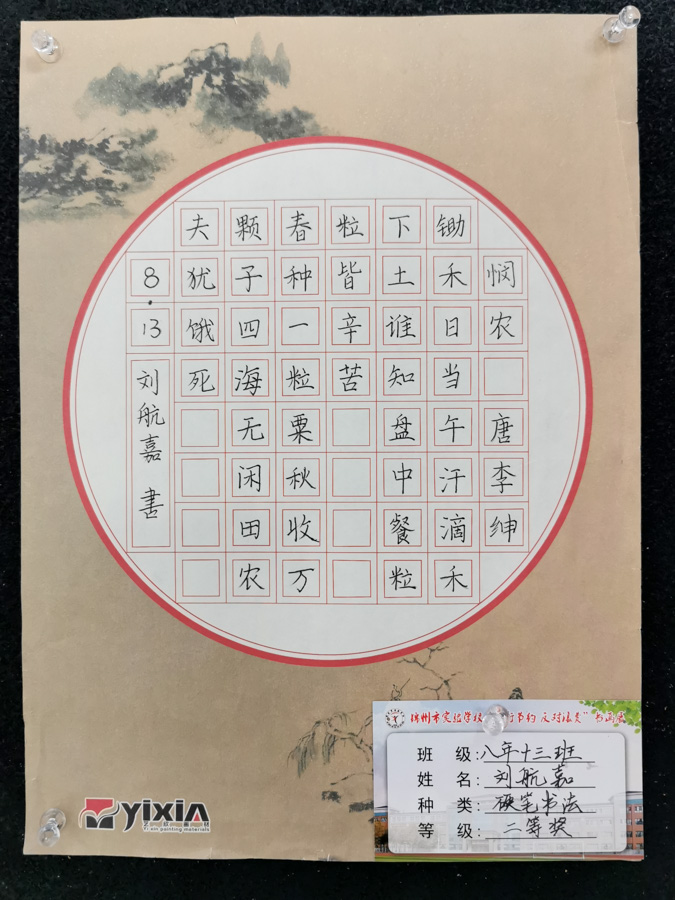 悯农 唐李绅
锄禾日当午汗滴禾
下土谁知盘中餐粒
粒皆辛苦
春种一粒粟秋收万
颗子四海无闲田农
夫犹饿死
8.13
刘航嘉 书
YIXIN
Yi xin painting materials
班级:八年十三班
姓名:刘航嘉
种类:硬笔书法
等级:二等奖